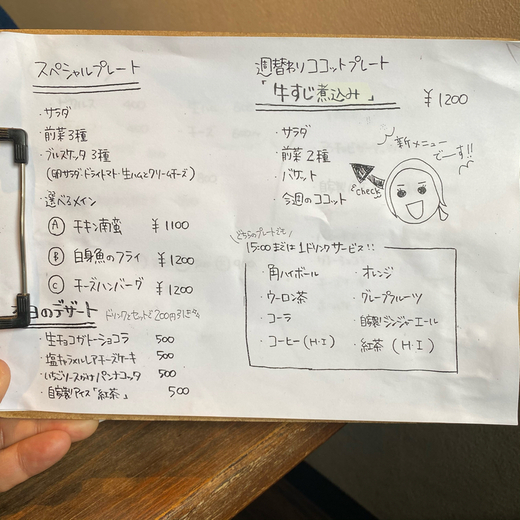 スペシャルプレート
・サラダ
・前菜3種
・ブルスケッタ3種
(卵サラダ・ドライトマト・生ハムとクリームチーズ)
・選べるメイン
Ⓐ チキン南蛮 ¥1100
Ⓑ 白身魚のフライ ¥1200
Ⓒ チーズハンバーグ ¥1200
日のデザート ドリンクとセットで200円引き
・生チョコガトーショコラ 500
・塩キャラメルレアチーズケーキ 500
・いちごソースがけパンナコッタ 500
・自家製アイス「紅茶」 500
週替わりココットプレート
「牛すじ煮込み」 ¥1200
・サラダ
・前菜2種
・バケット
・今週のココット
新メニュー
でーす!!
check
どちらのプレートでも
15:00までは1ドリンクサービス!!
・角ハイボール ・オレンジ
・ウーロン茶 ・グレープフルーツ
・コーラ ・自家製ジンジャーエール
・コーヒー(H・I) ・紅茶(H・I)